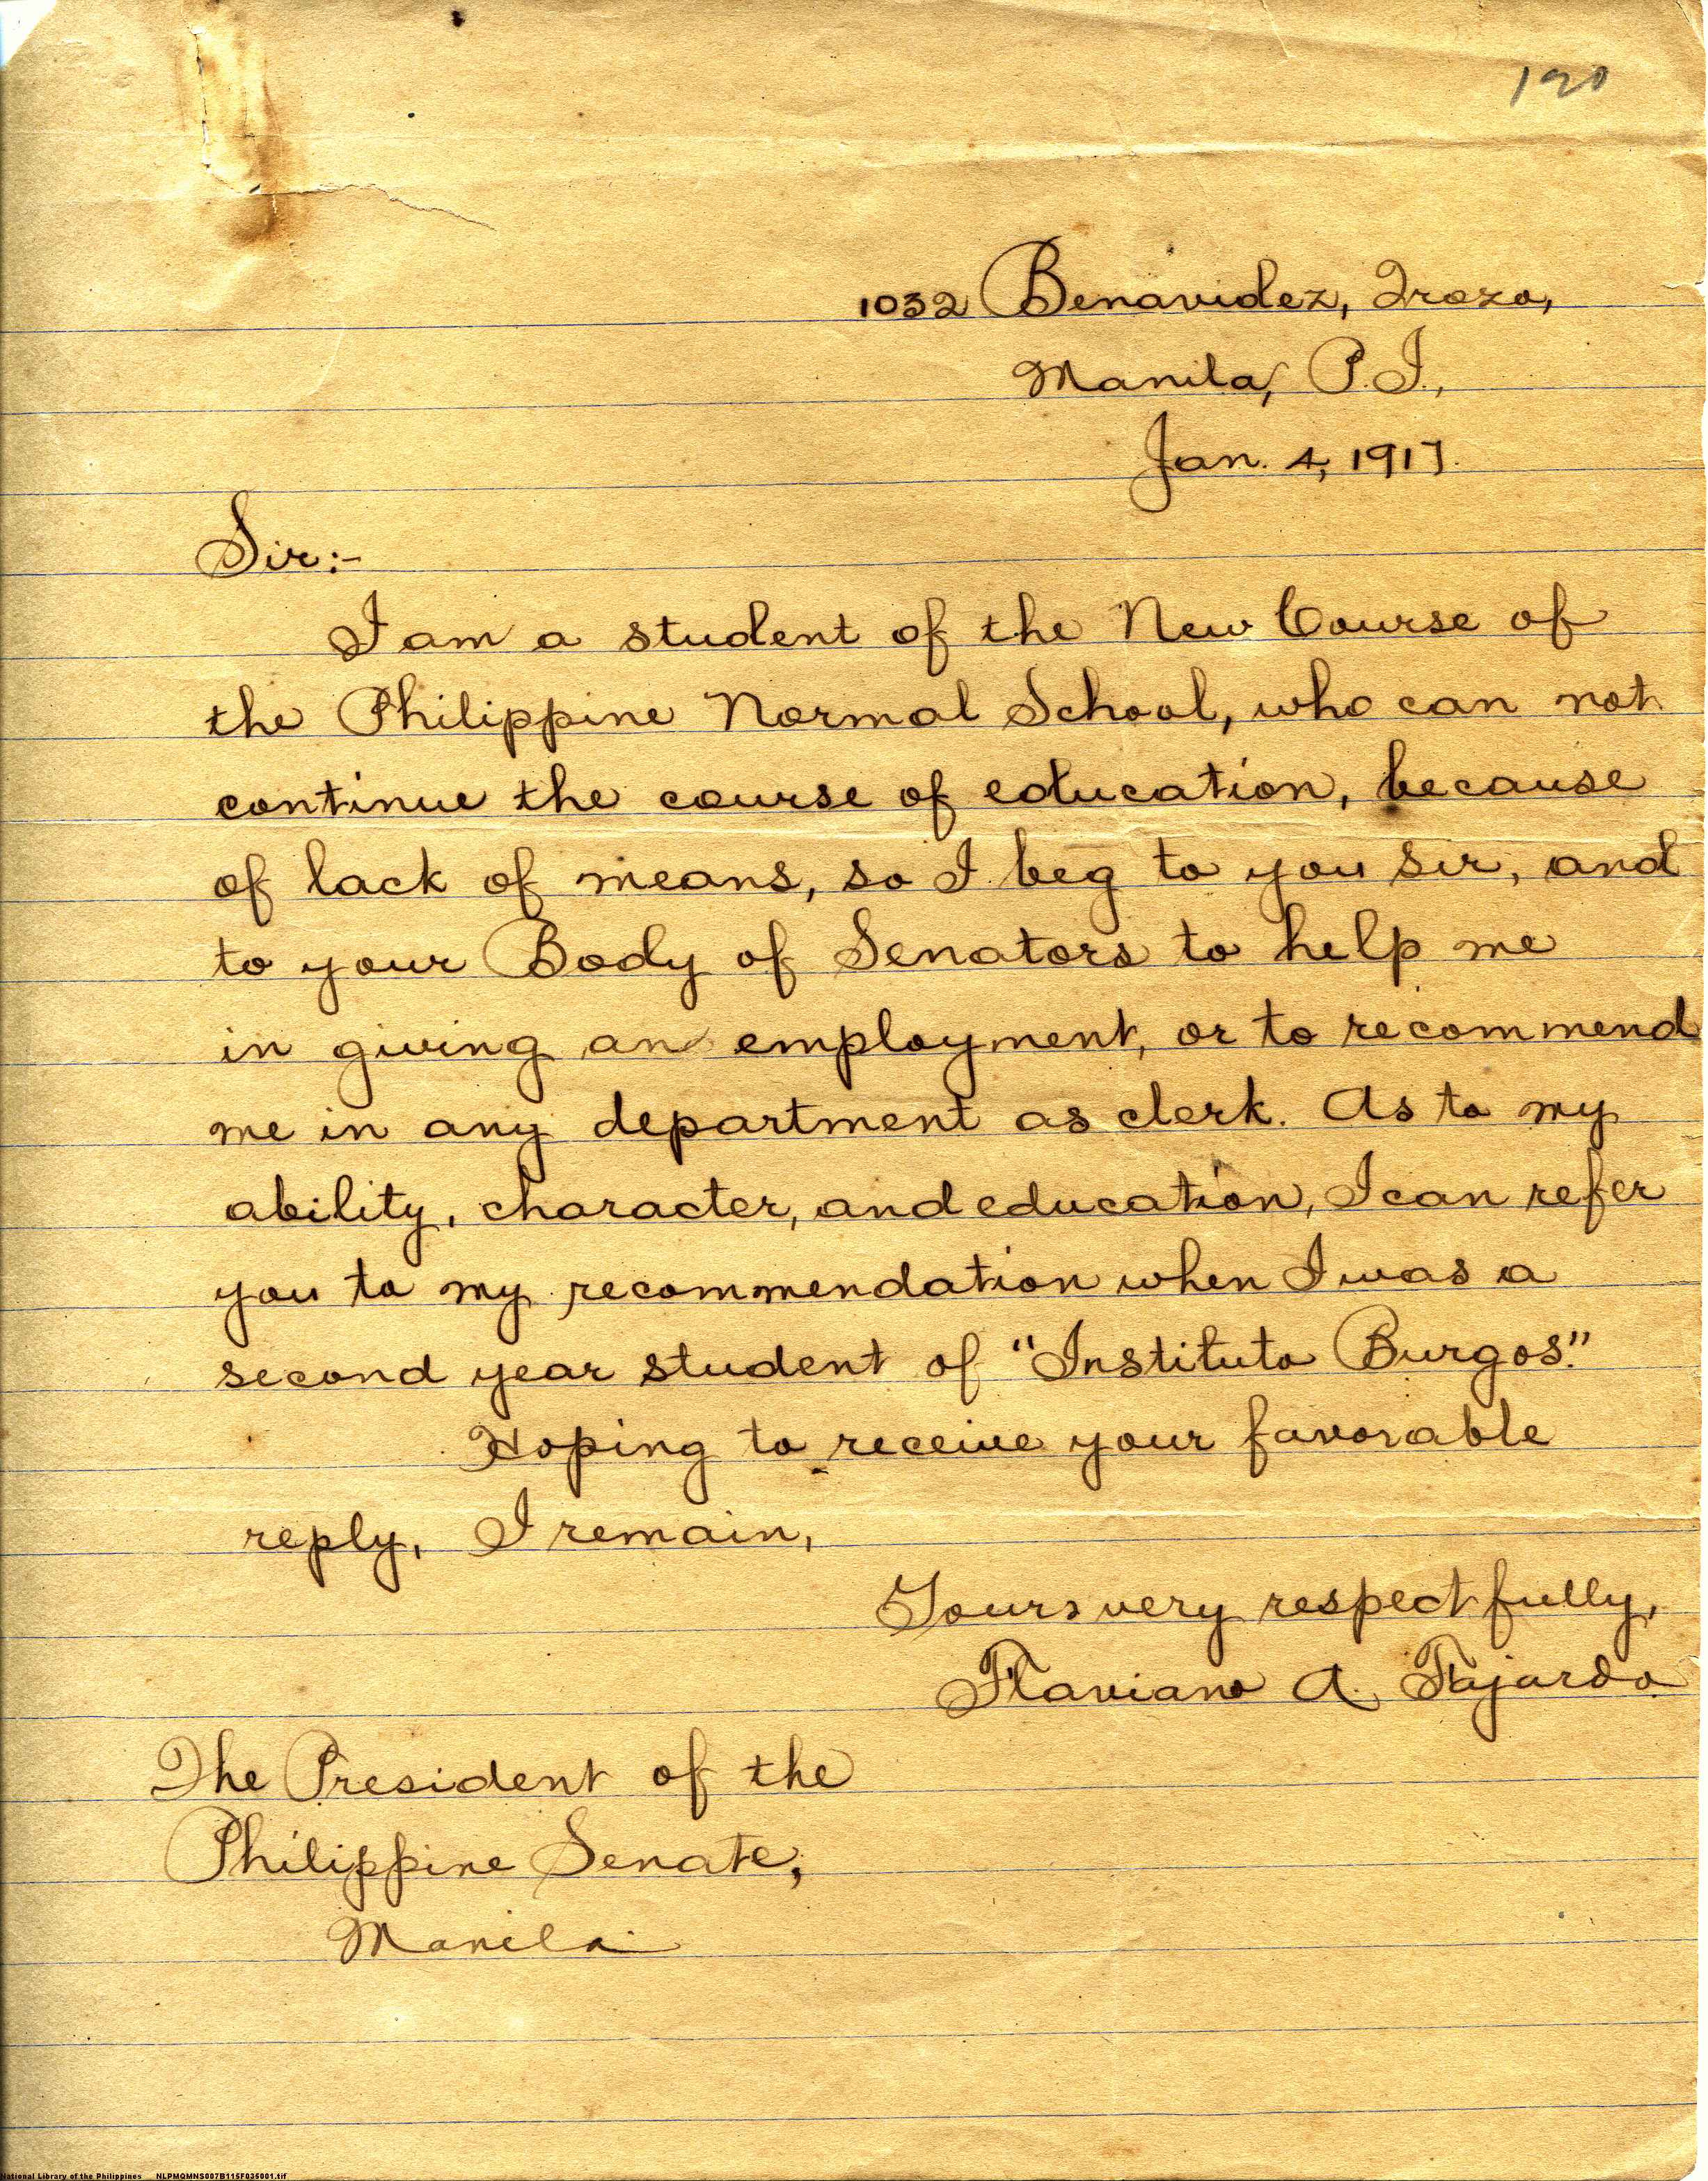 190
1032 Benavidez, Trozo,
Manila, P.I.,
Jan. 4, 1917.
Sir:-
I am a student of the New Course of
the Philippine Normal School, who can not
continue the course of education, because
of lack of means, so I beg to you sir, and
to your Body of Senators to help me
in giving an employment, or to recommend
me in any department as clerk. As to my
ability, character, and education, I can refer
you to my recommendation when I was a
second year student of "Instituto Burgos."
Hoping to receive your favorable
reply, I remain,
Yours very respectfully,
Flaviano A. Fajardo
The President of the
Philippine Senate,
Manila.
National Library of the Philippines NLPMQMNS007B115F035001.tif